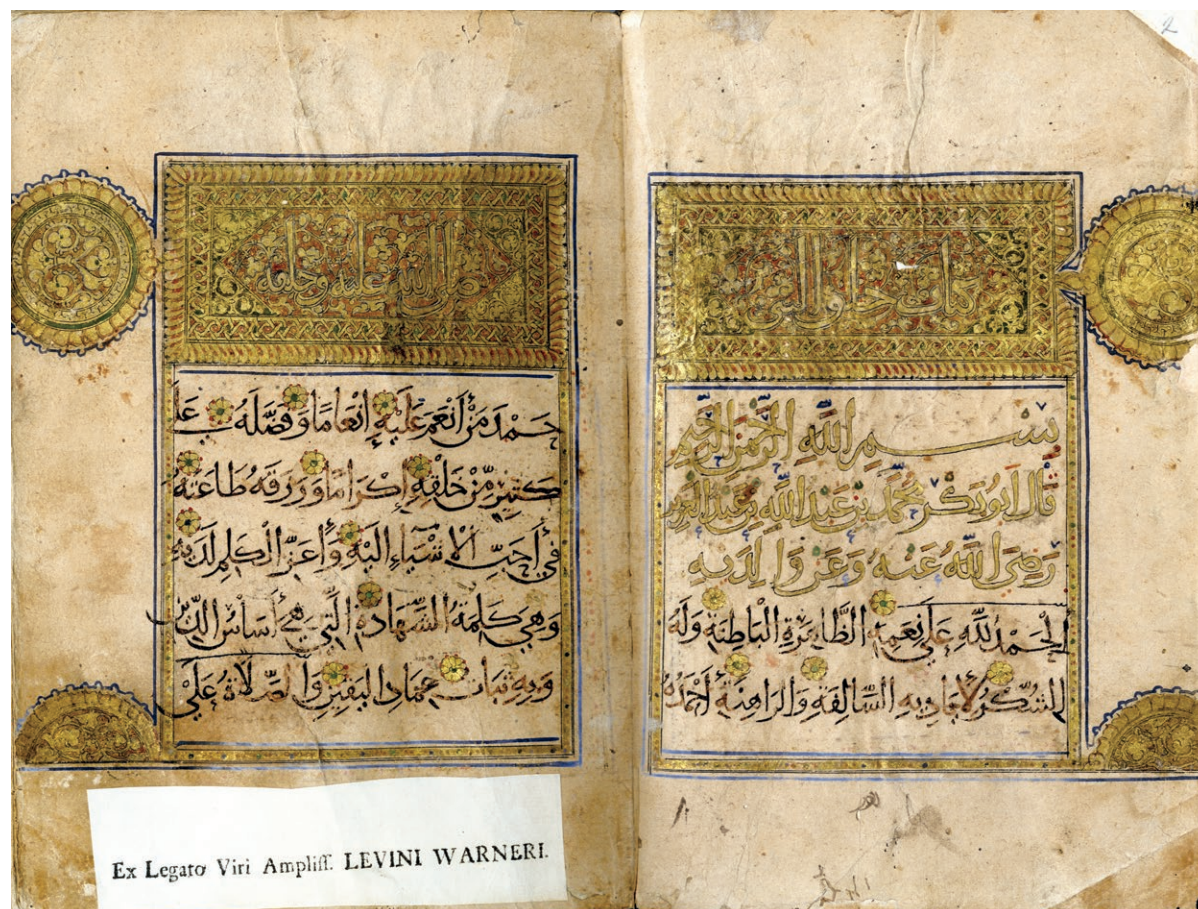 2
كتاب خلق النبي
بِسْمِ اللّٰهِ الرَّحْمٰنِ الرَّحِيمِ
قَالَ أَبُو بَكْرٍ مُحَمَّدُ بْنُ عَبْدِ اللّٰهِ بْنِ عَبْدِ الْعَزِيزِ
رَضِيَ اللّٰهُ عَنْهُ وَعَنْ وَالِدَيْهِ
الْحَمْدُ لِلّٰهِ عَلَى نِعَمِهِ الظَّاهِرَةِ الْبَاطِنَةِ وَلَهُ
الشُّكْرُ لِأَيَادِيهِ السَّالِفَةِ وَالرَاهِنَةِ أَحْمَدُهُ
صلى الله عليه وخلقه
حَمْدَ مَنْ أَنْعَمَ عَلَيْهِ إِنْعَامًا وَفَضَّلَهُ عَلَى
كَثِيرٍ مِّنْ خَلْقِهِ إِكْرَامًا وَرَزَقَهُ طَاعَتَهُ
فِي أَحَبِّ الْأَشْيَاءِ إِلَيْهِ وَأَعَزِّ الْكَلِمِ لَدَيْهِ
وَهِيَ كَلِمَةُ الشَّهَادَةِ الَّتِي هِيَ أَسَاسُ الدِّينِ
وَبِهِ ثَبَاتُ عِمَادِ الْيَقِينِ وَالصَّلَاةُ عَلَى
Ex Legato Viri Ampliss. LEVINI WARNERI.